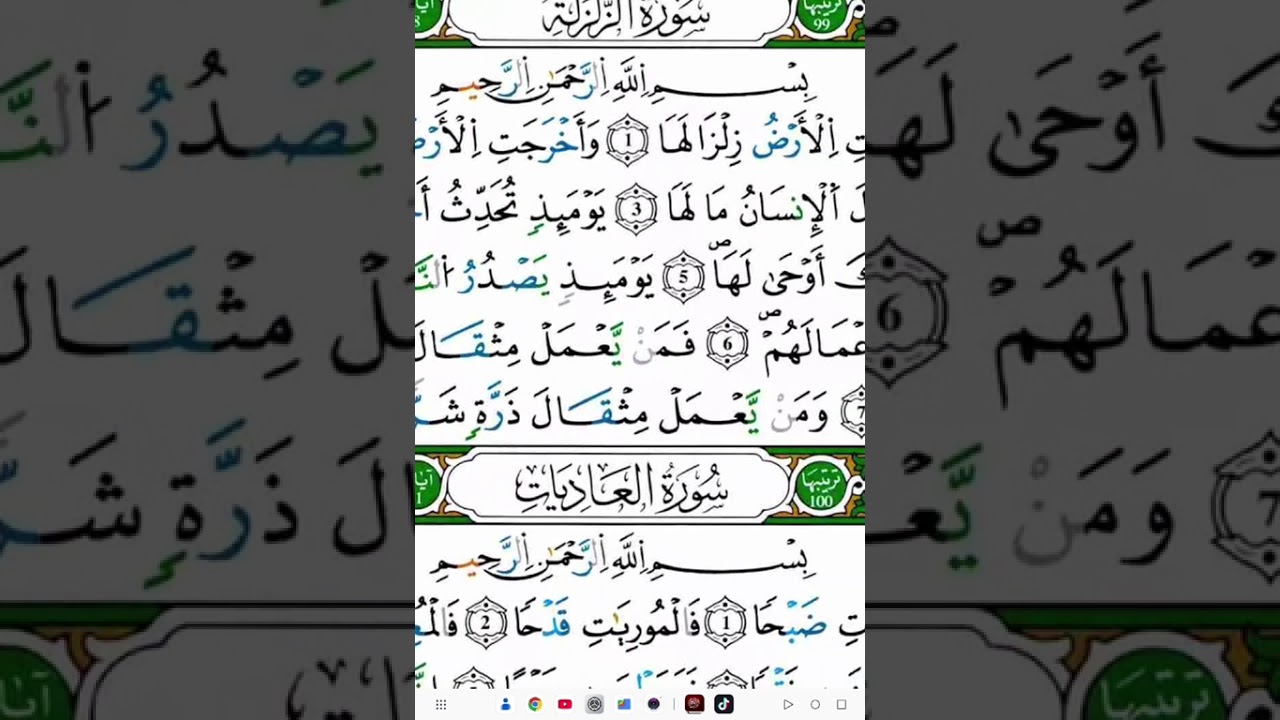 سُورَةُ الزَّلْزَلَةِ
تَرتيبُها
99
آيَا
8
بِسْمِ اِللَّهِ اِلرَّحْمَٰنِ اِلرَّحِيمِ
تِ اِلْأَرْضُ زِلْزَالَهَا 1 وَأَخْرَجَتِ اِلْأَرْضُ
لَ اَلْإِنسَانُ مَا لَهَا 3 يَوْمَئِذٍ تُحَدِّثُ أَ
كَ أَوْحَىٰ لَهَاۖ 5 يَوْمَئِذٍ يَصْدُرُ اُلنَّ
عْمَالَهُمْۖ 6 فَمَنْ يَّعْمَلْ مِثْقَالَ
7 وَمَنْ يَّعْمَلْ مِثْقَالَ ذَرَّةٍ شَرّ
سُورَةُ العَادِيَاتِ
تَرتيبُها
100
آيَا
1
بِسْمِ اِللَّهِ اِلرَّحْمَٰنِ اِلرَّحِيمِ
تِ ضَبْحًا 1 فَالْمُورِيَٰتِ قَدْحًا 2 فَالْمُغ